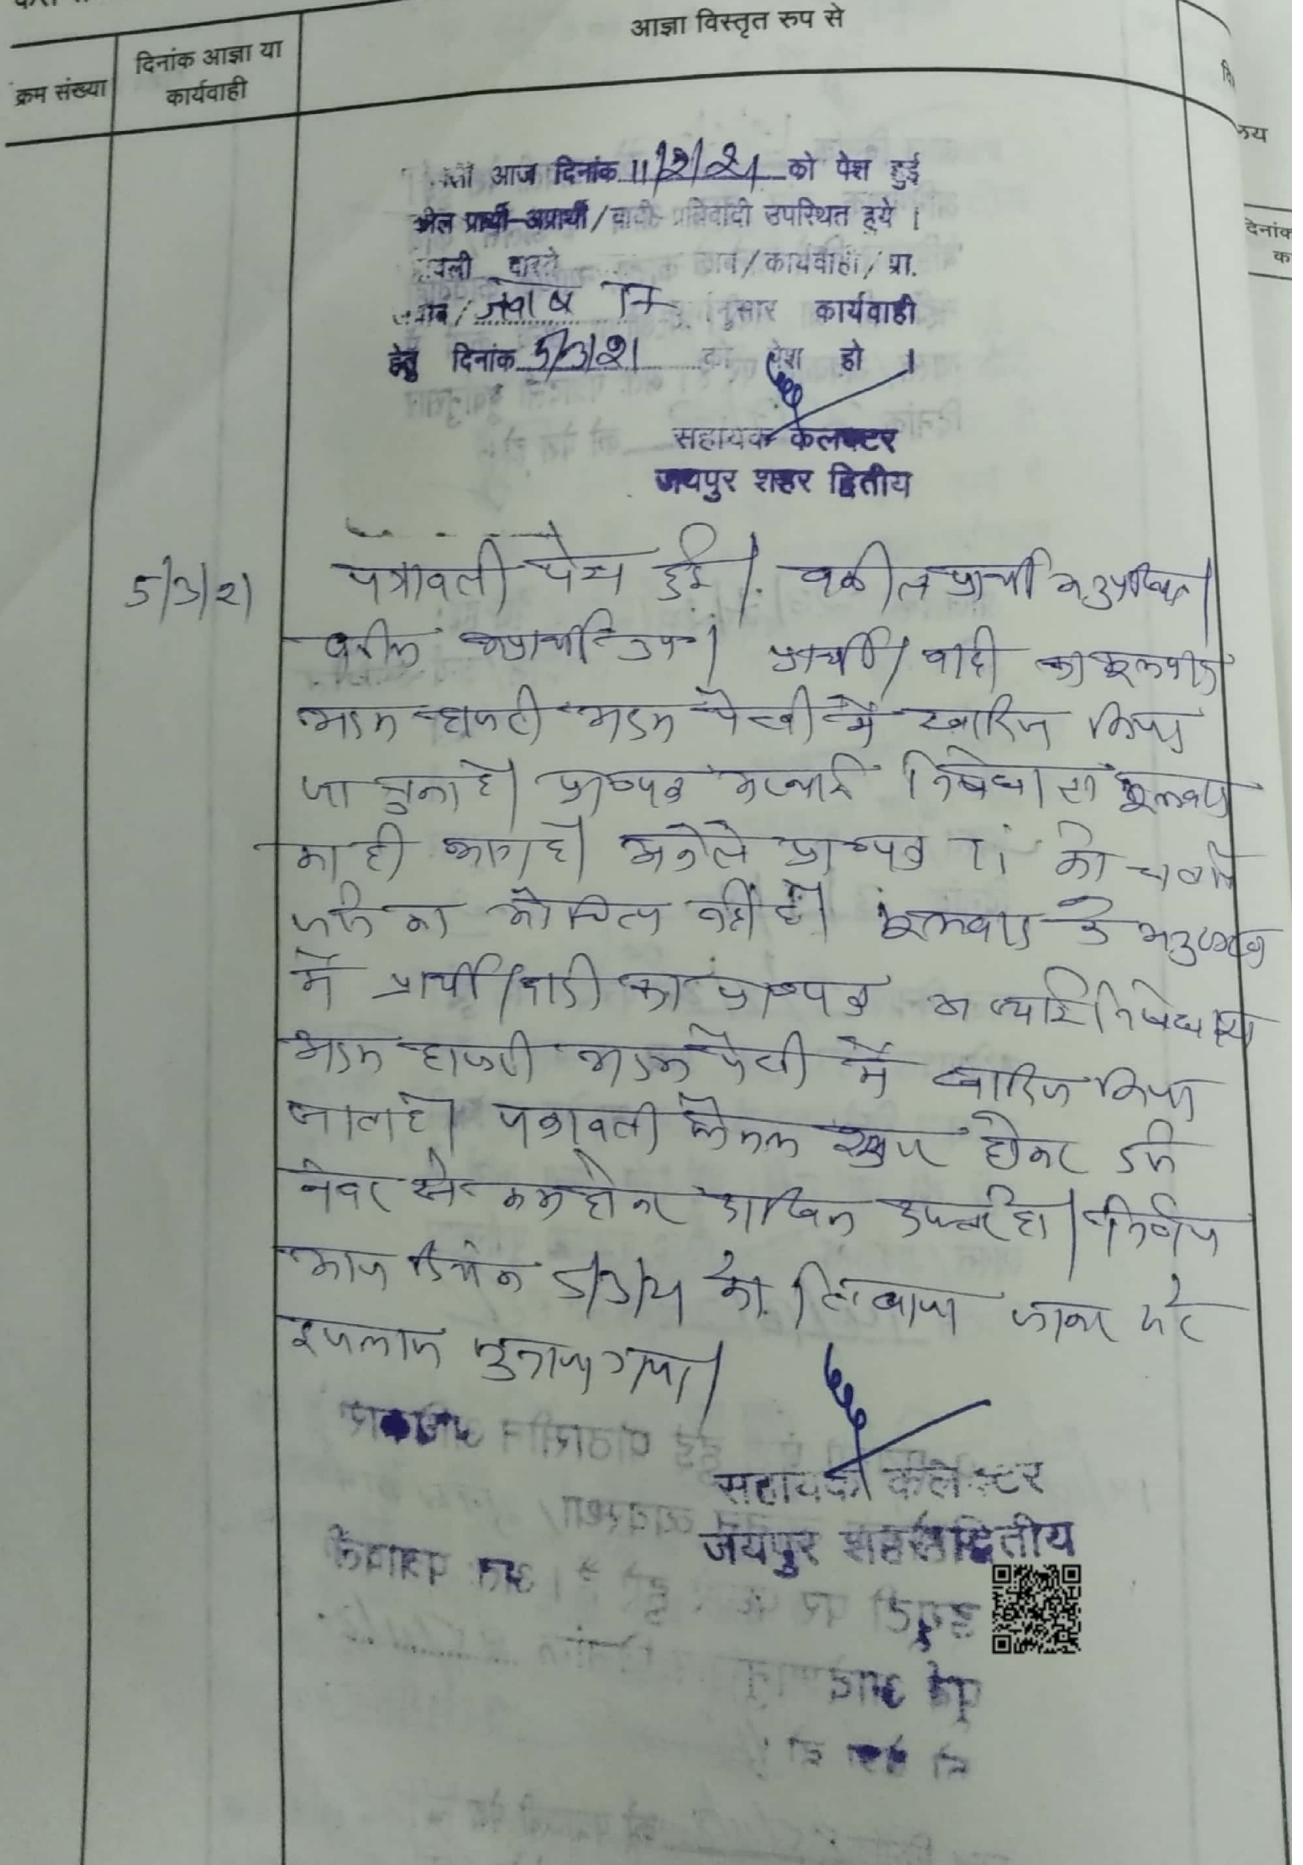 क्रम संख्या
दिनांक आज्ञा या
कार्यवाही
आज्ञा विस्तृत रुप से
आज दिनांक 11/2/21 को पेश हुई
प्रार्थी-अप्रार्थी/वादी-प्रतिवादी उपस्थित हुये ।
वास्ते /कार्यवाही/प्रा.
जवाब कार्यवाही
हेतु दिनांक 5/3/21 को पेश हो ।
सहायक कलक्टर
जयपुर शहर द्वितीय
दिनांक
5/3/21
पत्रावली पेश हुई। वकील प्रार्थी अनुपस्थित।
वकील अप्रार्थी उप। प्रार्थी/वादी का मूलवाद
अदम हाजरी अदम पैरवी में खारिज किया
जा चुका है। प्रा०पत्र अस्थाई निषेधाज्ञा मूलवाद
का ही भाग है। अकेले प्रा०पत्र T.I को चलाये
का औचित्य नहीं है। मूलवाद के
में प्रार्थी/वादी का प्रा०पत्र अस्थाई निषेधाज्ञा
अदम हाजरी अदम पैरवी में खारिज किया
जाता है। पत्रावली फैसल शुमार होकर दर्ज
नंबर से कम होकर दाखिल दफ्तर हो। निर्णय
आज दिनांक 5/3/21 को लिखाया जाकर सरे
इजलास सुनाया गया।
सहायक कलेक्टर
जयपुर शहर द्वितीय